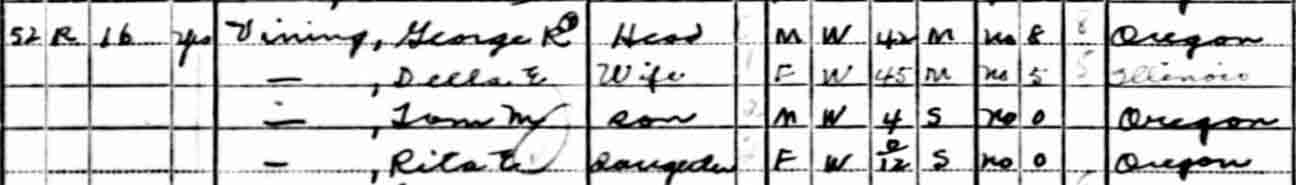 52 R 16 yes Vining, George R Head M W 42 M no 8 8 Oregon
— , Della E Wife F W 45 M no 5 5 Illinois
— , Tom M son M W 4 S no 0 Oregon
— , Rita E daughter F W 0/12 S no 0 Oregon